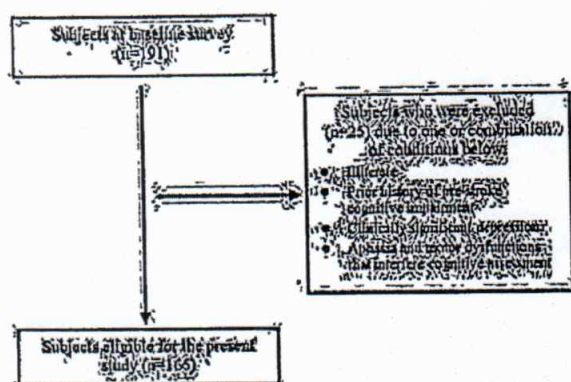 Subjects at baseline survey
(n=191)
Subjects who were excluded
(n=25) due to one or combination
of conditions below:
• Illiterate
• Prior history of pre-stroke
cognitive impairment
• Clinically significant depression
• Aphasia and motor dysfunctions
that interfere cognitive assessment
Subjects eligible for the present
study (n=166)